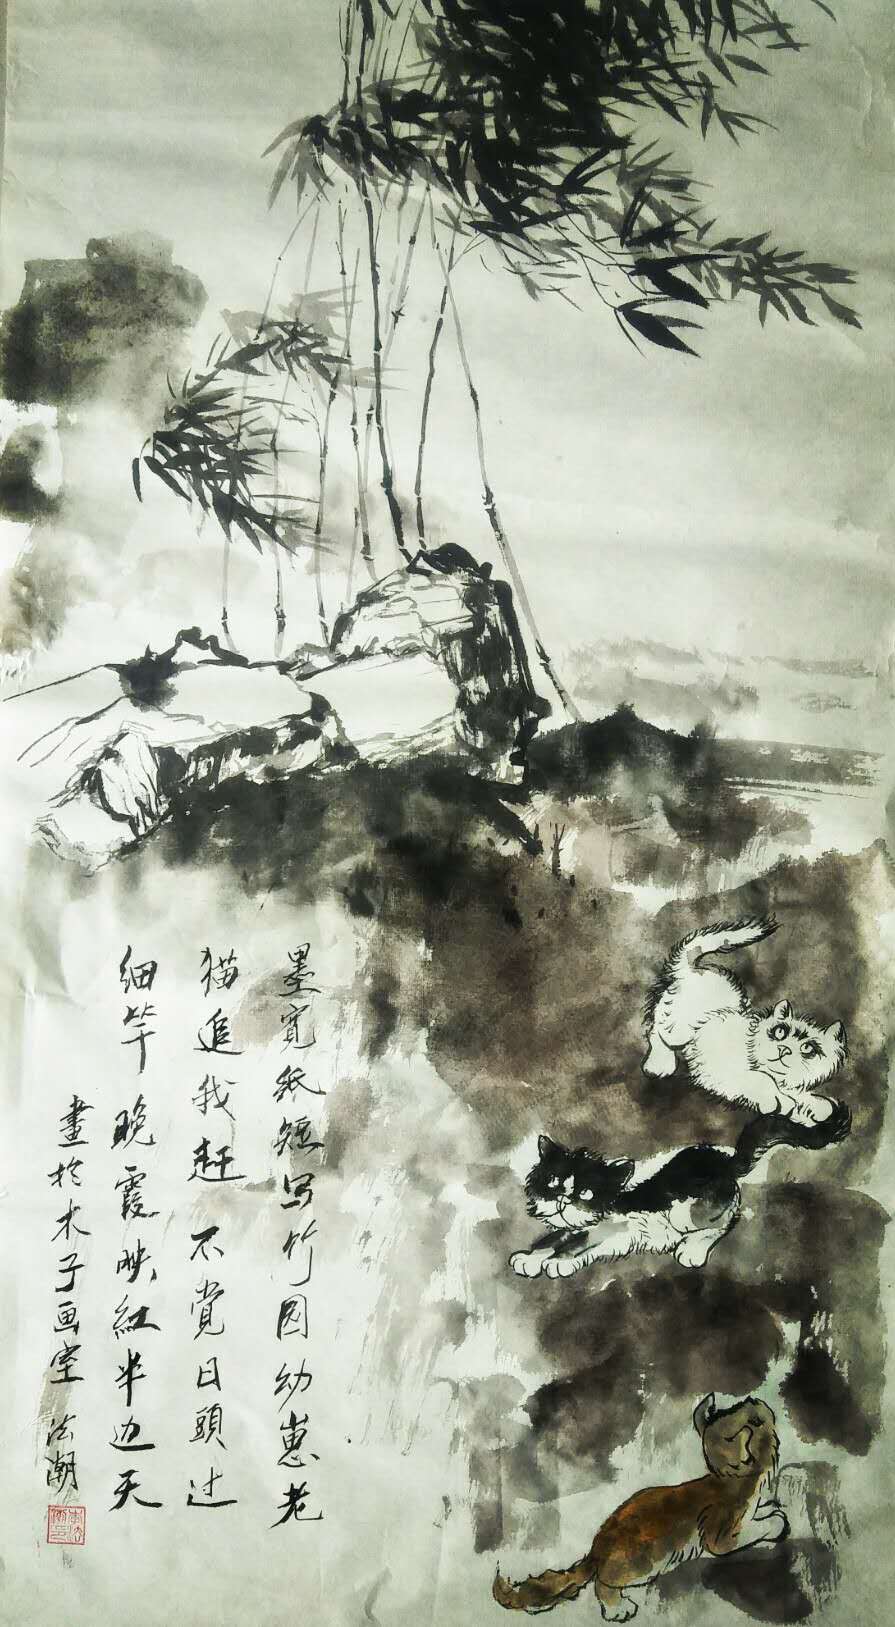 墨宽纸短写竹园幼崽老
猫追我赶不觉日頭过
细竿晚霞映红半边天
畫於木子画室 法潮